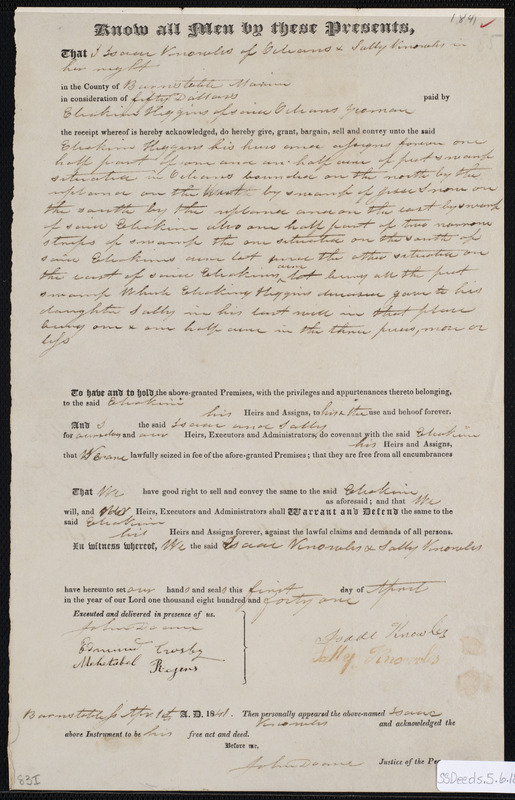 1841
85
Know all Men by these Presents,
That I Isaac Knowles of Orleans & Sally Knowles in
her right
in the County of Barnstable
in consideration of fifty Dollars paid by
Eliakim Higgins of said Orleans yeoman
the receipt whereof is hereby acknowledged, do hereby give, grant, bargain, sell and convey unto the said
Eliakim Higgins his heirs and assigns forever one
half part of one and an half acre of peet swamp
situated in Orleans bounded on the north by the
upland on the by swamp of Snow on
the south by the upland and on the east by swamp
of said Eliakim also one half part of two narrow
strips of swamp the one situated on the south of
said Eliakims own lot and the other situated on
the east of said Eliakims own lot being all the peet
swamp which Eliakim Higgins gave to his
daughter Sally in his last will in that place
being one & one half acre in the three pieces, more or
less
To have and to hold the above-granted Premises, with the privileges and appurtenances thereto belonging,
to the said Eliakim
his Heirs and Assigns, to his & their use and behoof forever.
And I the said Isaac and Sally
for ourselves and our Heirs, Executors and Administrators, do covenant with the said Eliakim
his Heirs and Assigns,
that We are lawfully seized in fee of the afore-granted Premises; that they are free from all encumbrances
That We have good right to sell and convey the same to the said Eliakim
as aforesaid; and that We
will, and Heirs, Executors and Administrators shall Warrant and Defend the same to the
said Eliakim
his Heirs and Assigns forever, against the lawful claims and demands of all persons.
In witness whereof, We the said Isaac Knowles & Sally Knowles
have hereunto set our hands and seals this first day of April
in the year of our Lord one thousand eight hundred and forty one
Executed and delivered in presence of us.
John Doane
Edmund Crosby
Mehitabel Rogers
Isaac Knowles
Sally Knowles
Barnstable ss Apr 1st A. D. 1841. Then personally appeared the above-named Isaac
Knowles and acknowledged the
above Instrument to be his free act and deed.
Before me,
John Doane Justice of the Pe
83I
SSDeeds.5.6.18